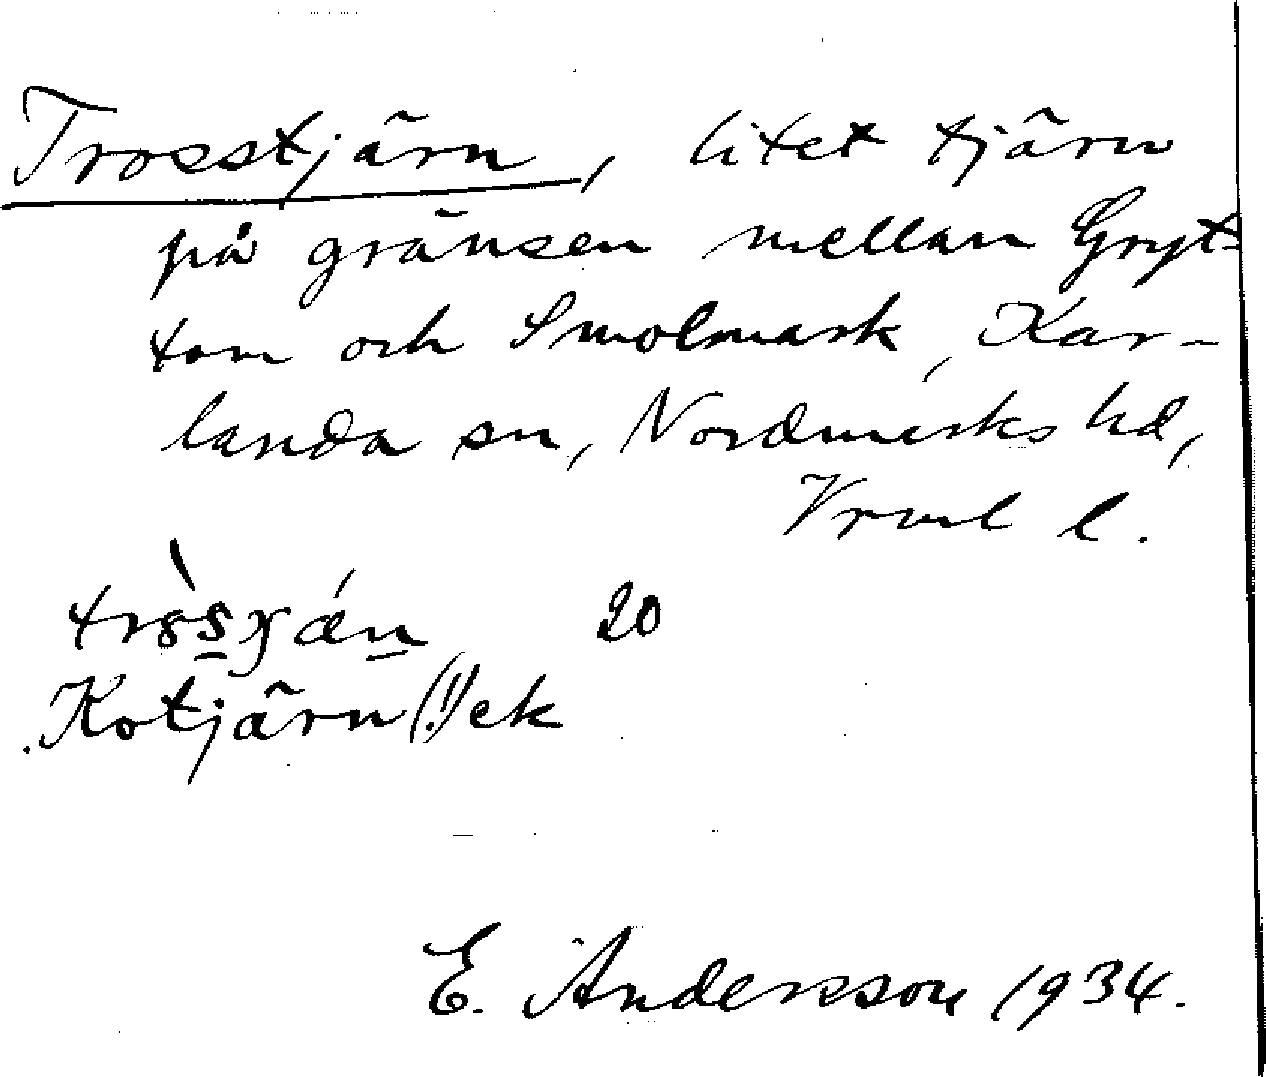 Trosstjärn, litet tjärn
på gränsen mellan Gryt-
tom och Smolmark, Kar-
landa sn, Nordmarks hd,
Vrml l.
20
Kotjärn (!) ek
E. Andersson 1934.